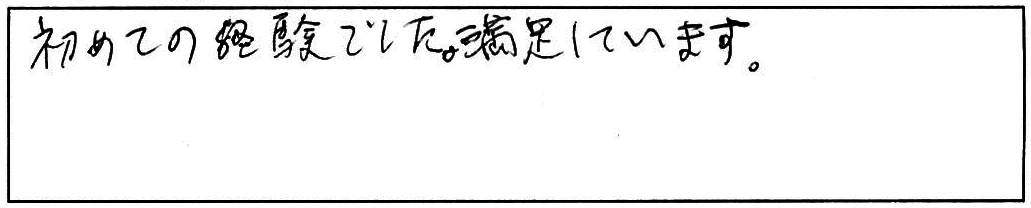 初めての経験でした。満足しています。